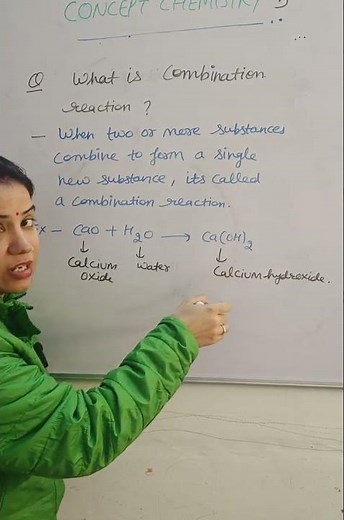 CONCEPT CHEMISTRY
Q What is Combination
reaction ?
— When two or more substances
combine to form a single
new substance, its called
a combination reaction.
Ex — CaO + H2O → Ca(OH)2
↓ ↓ ↓
Calcium water Calcium hydroxide.
Oxide